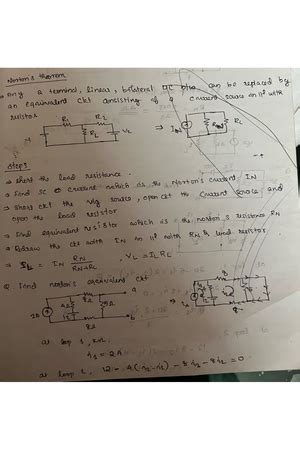 Norton's theorem
→ Any 2 terminal, linear, bilateral DC ckt can be replaced by
an equivalent ckt consisting of a current source in || with
resistor
R1 R2
RL VL ⇒ IN RN RL
Steps
→ Short the load resistance.
→ Find SC current which is the Norton's current IN
→ Short ckt the vtg source, open ckt the current source and
open the load resistor
→ Find equivalent resistor which is the norton's resistance RN
→ Redraw the ckt with IN in || with RN & load resistor.
→ IL = IN RN/RN+RL , VL = IL RL
Q. Find norton's equivalent ckt
8Ω a
2A 4Ω
8Ω b
at loop 1, KVL
i1 = 2A
at loop 2, 12 - 4(i2 - i1) - 8i2 - 8i2 = 0